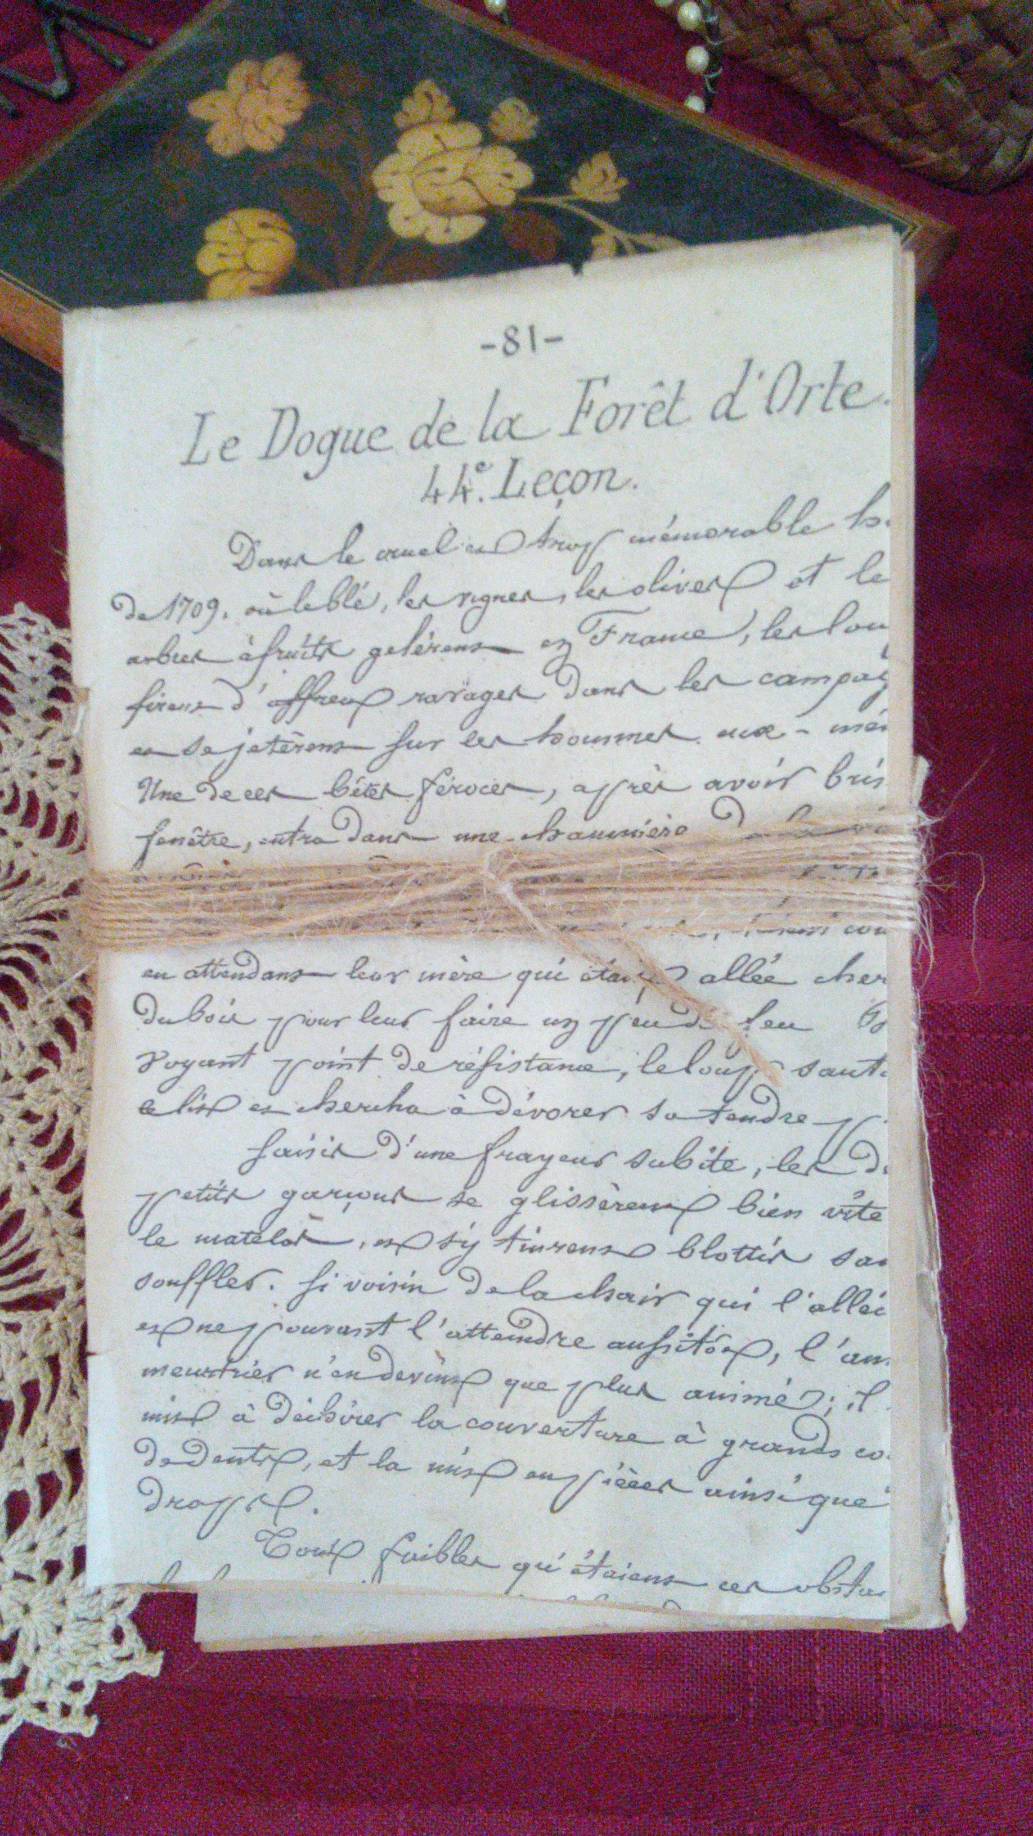 -81-
Le Dogue de la Forêt d'Orte.
44e. Leçon.
Dans le cruel et trop mémorable h
de 1709, où le blé, les vignes, les olives et le
arbres à fruits gelèrent en France, les lou
firent d'affreux ravages dans les campag
et se jetèrent sur les hommes eux-mêm
Une de ces bêtes féroces, après avoir bris
fenêtre, entra dans une chaumière
en attendant leur mère qui était allée cher
du bois pour leur faire un peu de feu
voyant point de résistance, le loup saute
le lit et chercha à dévorer sa tendre p
Saisis d'une frayeur subite, les d
petits garçons se glissèrent bien vite
le matelas, et s'y tinrent blottis san
souffler. Si voisin de la chair qui l'alléc
et ne pouvant l'atteindre aussitôt, l'ani
meurtrier n'en devint que plus animé; il
mit à déchirer la couverture à grands co
de dents, et la mit en pièces ainsi que
draps.
Tout faibles qu'étaient ces obstac